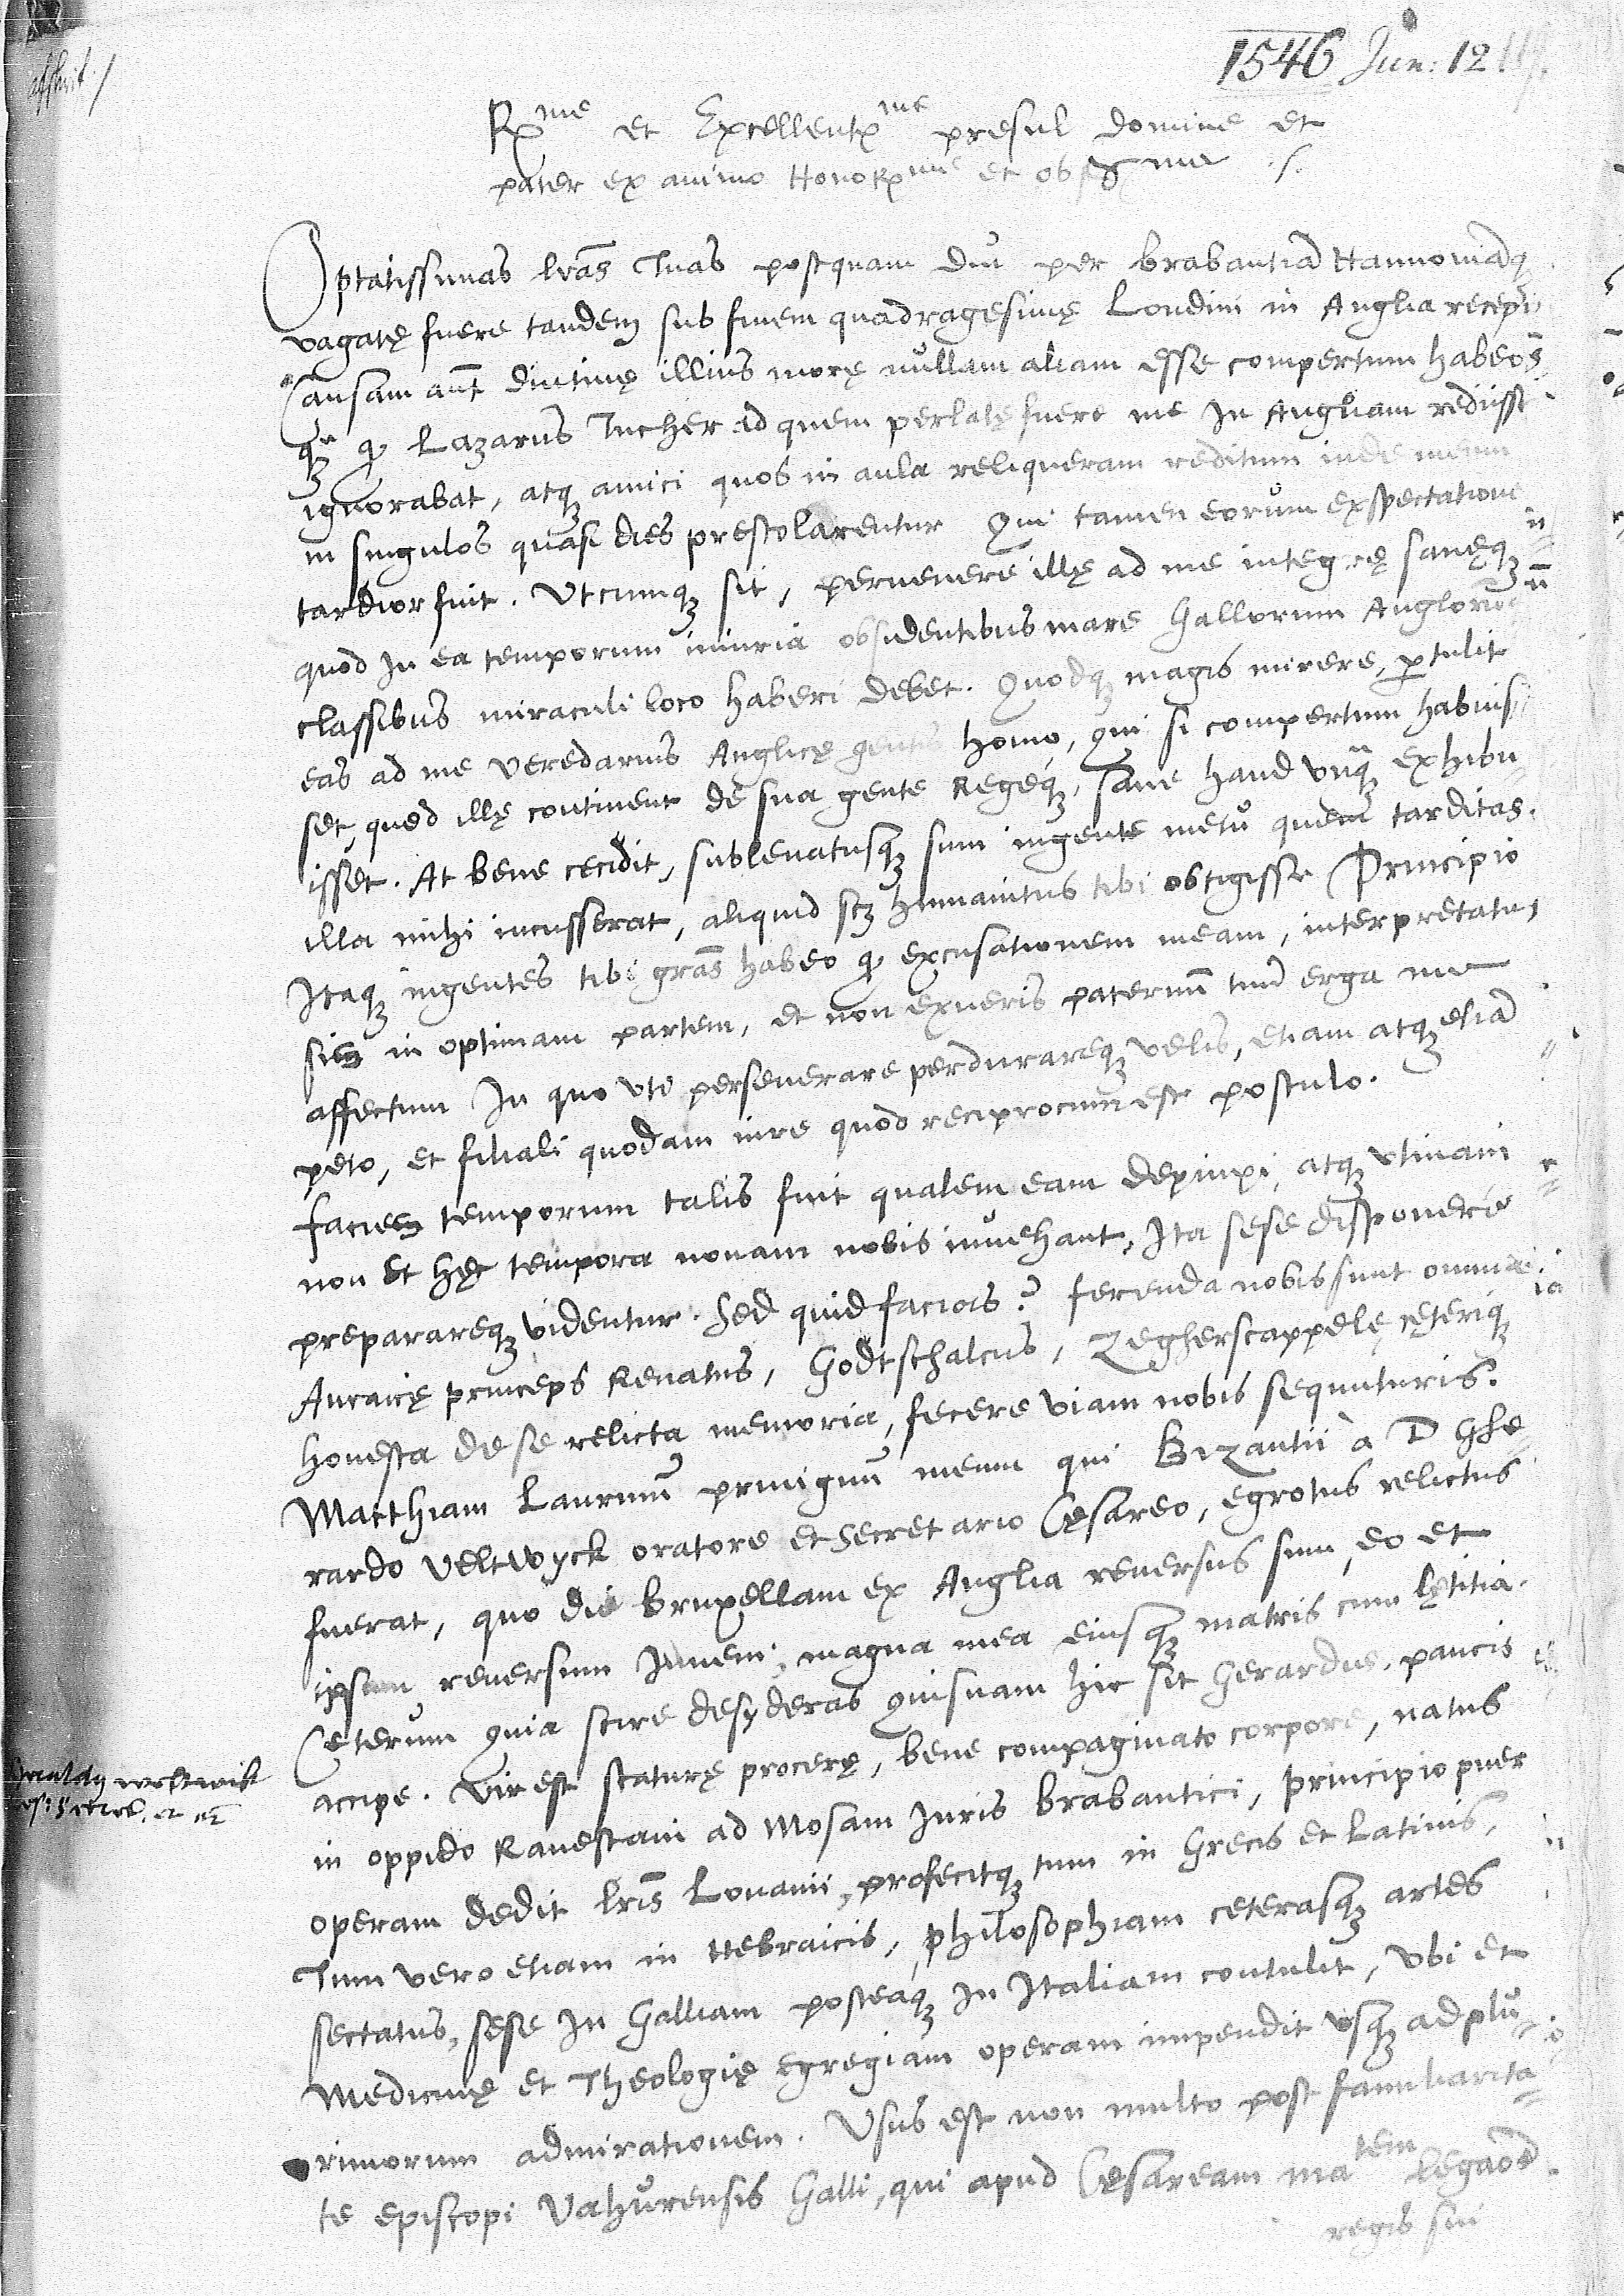 1546 Jun: 12
R^me et Excellent^me presul domine et
pater ex animo Honor^me et obser^me S.
Optatissimas lr̃as tuas postquam diu per brabantiã Hannoniãq
vagatę fuere tandem sub finem quadragesimę Londini in Anglia recepi
Causam aũt diutinę illius morę nullam aliam esse compertum habeo
q̃ꝫ ꝙ Lazarus Tucher ad quem perlatę fuere me in Angliam rediisse
ignorabat, atqꝫ amici quos in aula reliqueram reditum inde meum
in singulos quasi dies prestolarentur Qui tamen eorum exspectatione
tardior fuit. Utcumqꝫ sit, pervenere illę ad me integrę sanęqꝫ
quod in ea temporum iniuria obsidentibus mare Gallorum Anglorũ
classibus miraculi loco haberi debet. Quodqꝫ magis mirere, ꝑtulit
eas ad me veredarius Anglicę gentis homo, qui si compertum habuis
set, quod illę continent de sua gente Regeqꝫ, sane haud unq̃ꝫ exhibu
isset. At bene cecidit, sublevatusqꝫ sum ingente metu quem tarditas
illa mihi incusserat, aliquid scꝫ humanitus tibi obtigisse Principio
Itaqꝫ ingentes tibi gr̃as habeo ꝙ excusationem meam, interpretatus
sies in optimam partem, et non exueris paternũ tuũ erga me
affectum In quo uti perseverare perdurareqꝫ velis, etiam atqꝫ etiã
peto, et filiali quodam iure quod reciprocum est postulo.
facies temporum talis fuit qualem eam depinxi, atqꝫ utinam
non et hęc tempora novam nobis invehant, Ita sese disponere
preparareqꝫ videntur. Sed quid facias? ferenda nobis sunt omnia
Auraicę princeps Renatus, Godtschalcus, Zegherscappelę cęteriqꝫ
honesta de se relicta memoria, fecere viam nobis sequuturis.
Matthiam Laurinũ privignũ meum qui Bizantii à D Ghe
rardo Veltwyck oratore et secretario Cęsareo, egrotus relictus
fuerat, quo die bruxellam ex Anglia reversus sum, eo et
ipsum reversum inveni, magna mea eiusqꝫ matris cum lętitia.
Cęterum quia scire desyderas quisnam hic sit Gerardus, paucis
accipe. Vir est staturę procerę, bene compaginato corpore, natus
in oppido Ravestain ad Mosam Iuris brabantici, principio puer
operam dedit lr̃is Lovanii, profecitqꝫ tum in Grecis et Latinis,
Tum vero etiam in Hebraicis, philosophiam ceterasqꝫ artes
sectatus, sese in Galliam posteaqꝫ in Italiam contulit, ubi et
Medicinę et Theologię egregiam operam impendit usqꝫ ad plu
rimorum admirationem. Usus est non multo post familiarita
te episcopi Vahurensis Galli, qui apud Cęsaream ma^tem legaõe
regis sui